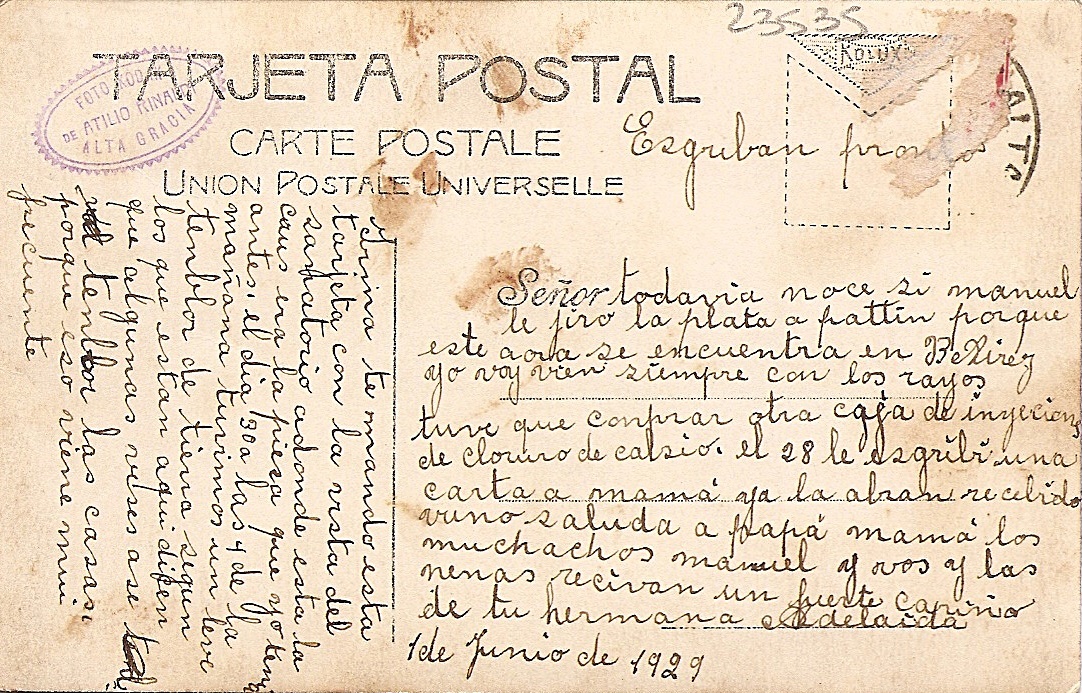 23535
TARJETA POSTAL
CARTE POSTALE
UNION POSTALE UNIVERSELLE
KOLUX
FOTO
DE ATILIO RINAL
ALTA GRACIA
ALTA
Esgriban pronto
Irina te mando esta
tarjeta con la vista del
sanatorio adonde esta la
caus era la piesa que yo tenia
antes. el dia 30 a las 4 de la
mañana tuvimos un leve
tenblor de tierra segun
los que estan aqui disen
que algunas veses ase
tenblor las casas.
porque eso viene mui
frecuente
Señor todavia noce si manuel
le jiro la plata a pattin porque
este aora se encuentra en
yo voy vien siempre con los rayos
tuve que conprar otra caja de inyecions
de cloruro de calsio. el 28 le esgribi una
carta a mamá ya la abran recebido
vuno saluda a papá mamá los
muchachos manuel y vos y las
nenas recivan un fuerte cariño
de tu hermana Adelaida
1 de Junio de 1929